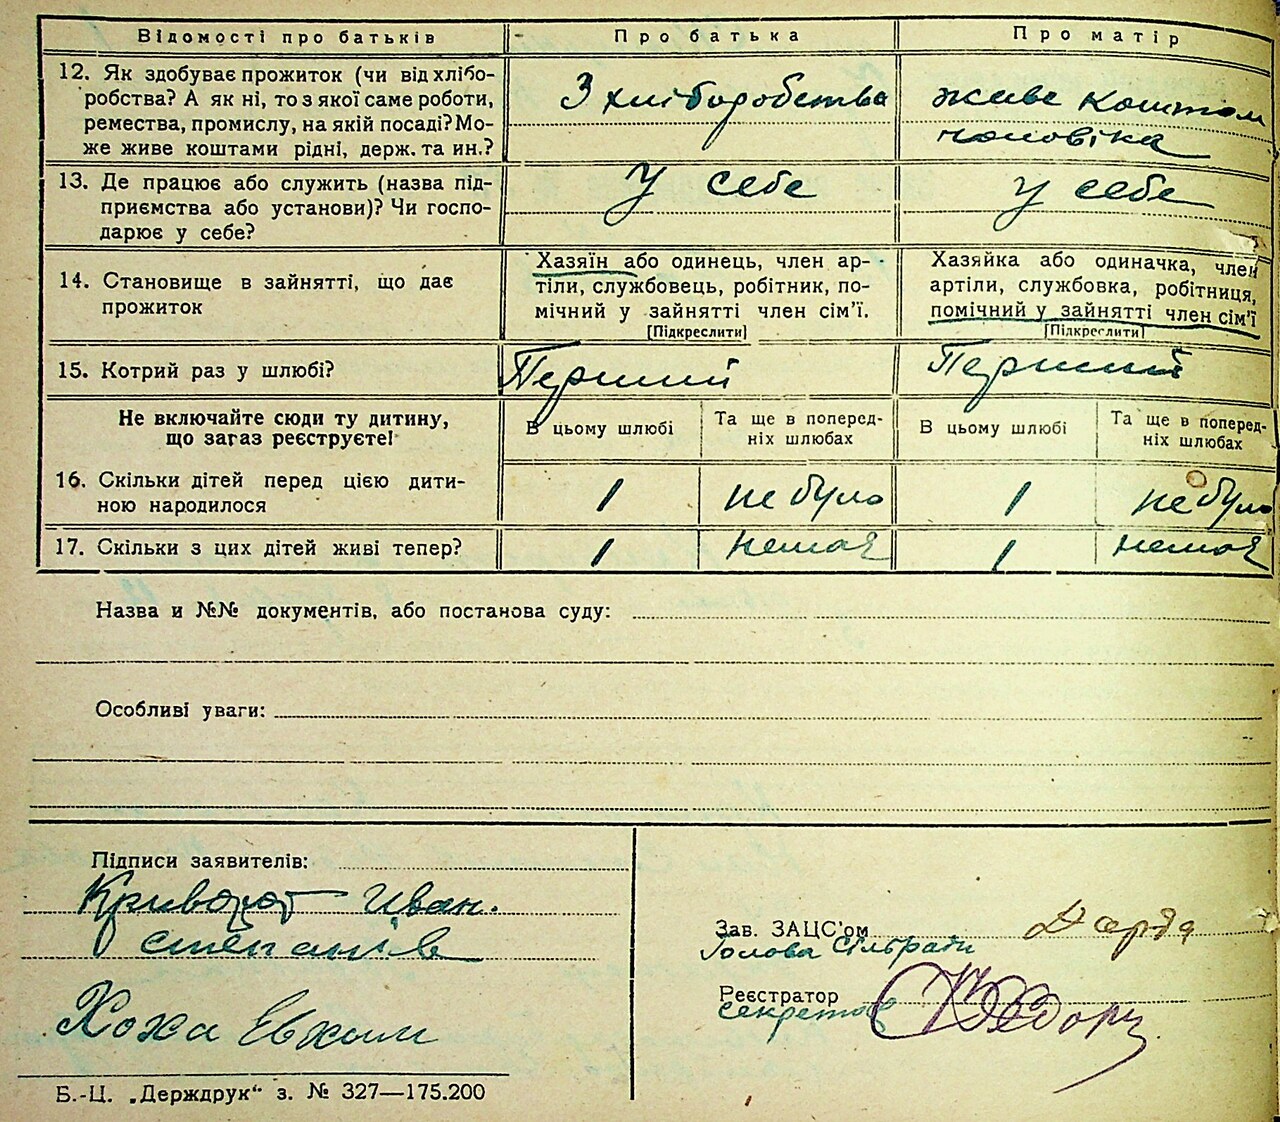 Відомості про батьків
Про батька
Про матір
12. Як здобуває прожиток (чи від хлібо-
робства? А як ні, то з якої саме роботи,
ремества, промислу, на якій посаді? Мо-
же живе коштами рідні, держ. та ин.?
З хліборобства
живе коштом
чоловіка
13. Де працює або служить (назва під-
приємства або установи)? Чи госпо-
дарює у себе?
У себе
У себе
14. Становище в зайнятті, що дає
прожиток
Хазяїн або одинець, член ар-
тіли, службовець, робітник, по-
мічний у зайнятті член сім'ї.
[Підкреслити]
Хазяйка або одиначка, член
артіли, службовка, робітниця,
помічний у зайнятті член сім'ї
[Підкреслити]
15. Котрий раз у шлюбі?
Перший
Перший
Не включайте сюди ту дитину,
що загаз реєструєте!
В цьому шлюбі
Та ще в поперед-
ніх шлюбах
В цьому шлюбі
Та ще в поперед-
ніх шлюбах
16. Скільки дітей перед цією дити-
ною народилося
1
не було
1
не було
17. Скільки з цих дітей живі тепер?
1
немає
1
немає
Назва и №№ документів, або постанова суду:
Особливі уваги:
Підписи заявителів:
Іван.
степанів
Хоха Евхим
Зав. ЗАЦС'ом
Голова сільради
Реєстратор
секретар
Б.-Ц. „Держдрук“ з. № 327—175.200